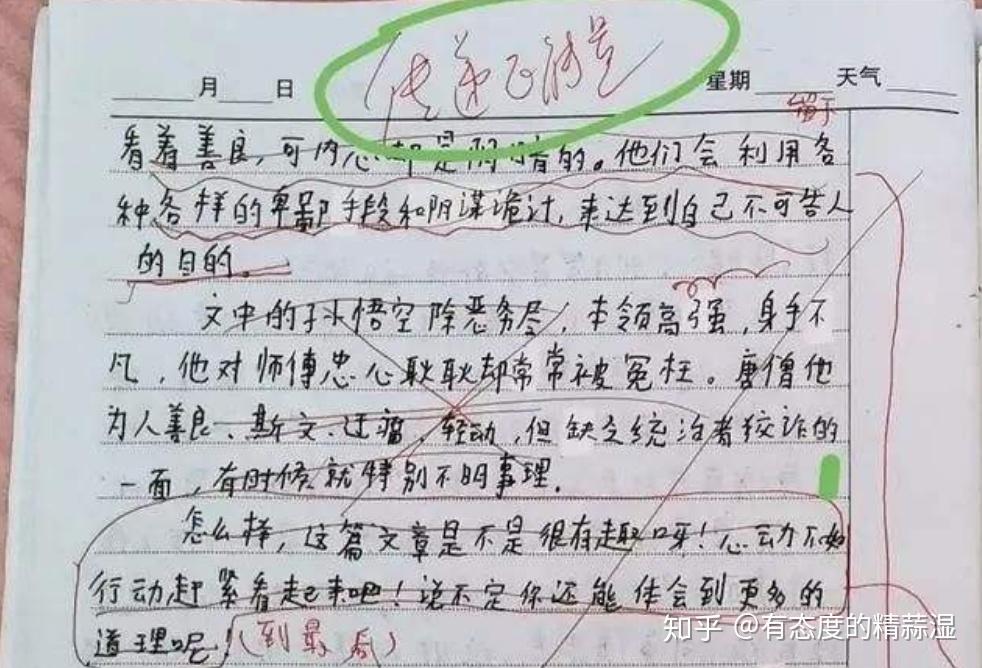 传递正能量
月 日 星期 天气
留于
看着善良,可内心却是阴暗的。他们会利用各
种各样的卑鄙手段和阴谋诡计,来达到自己不可告人
的目的。
文中的孙悟空除恶务尽,本领高强,身手不
凡,他对师傅忠心耿耿却常常被冤枉。唐僧他
为人善良、斯文、迂腐、轻动,但缺乏统治者狡诈的
一面,有时候就特别不明事理.
怎么样,这篇文章是不是很有趣呀!心动不如
行动赶紧看起来吧!说不定你还能体会到更多的
道理呢!(到最后)
知乎 @有态度的精蒜湿